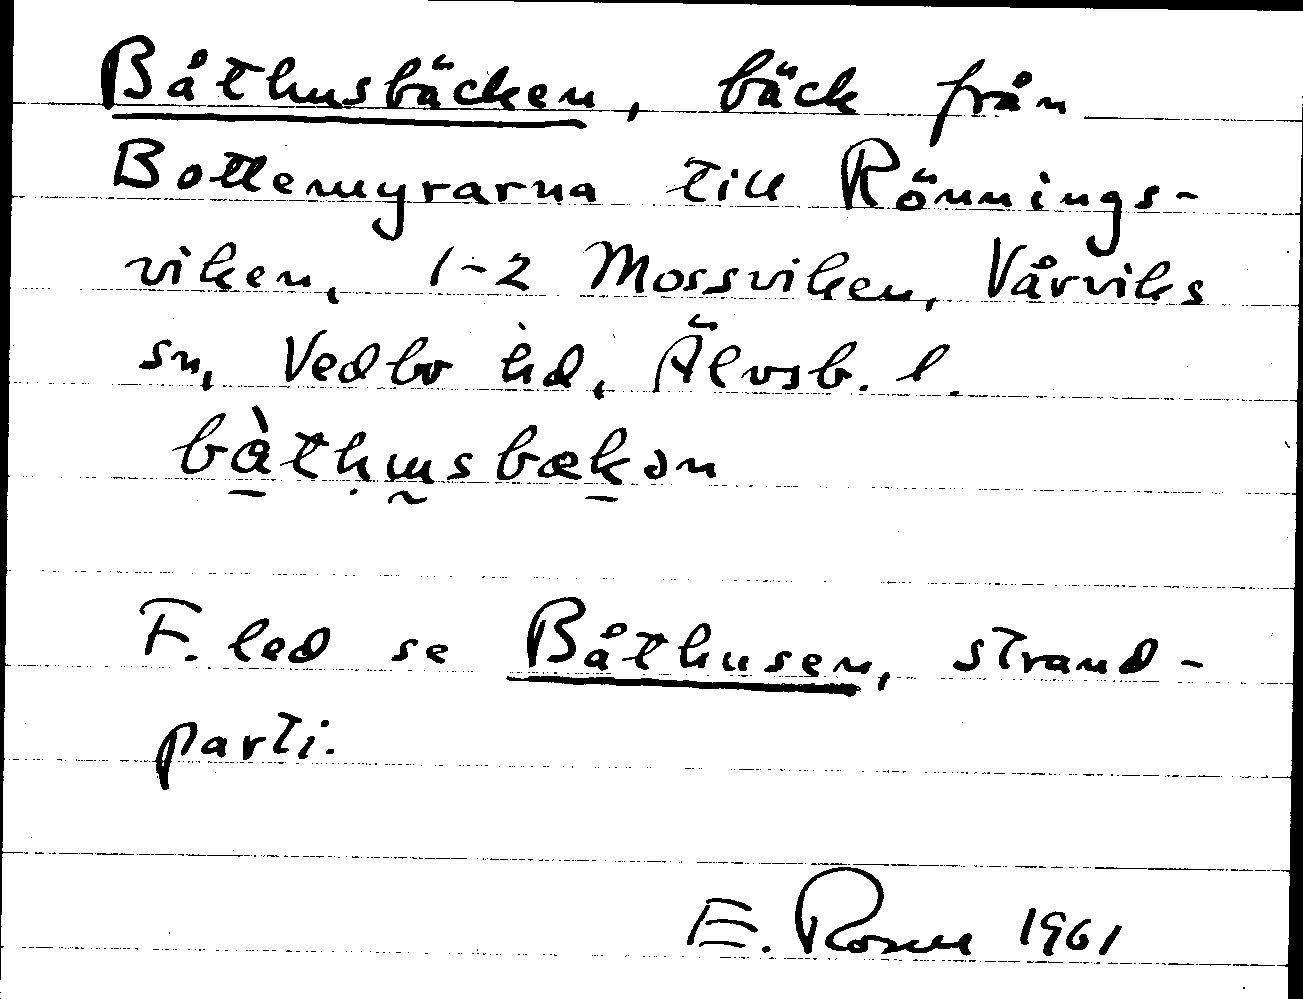 Båthusbäcken, bäck från
Bottemyrarna till Rönnings-
viken, 1-2 Mossviken, Vårviks
sn, Vedbo hd, Älvsb. l.
bàthɯsbækən
F. led se Båthusen, strand-
parti.
E. Rosell 1961